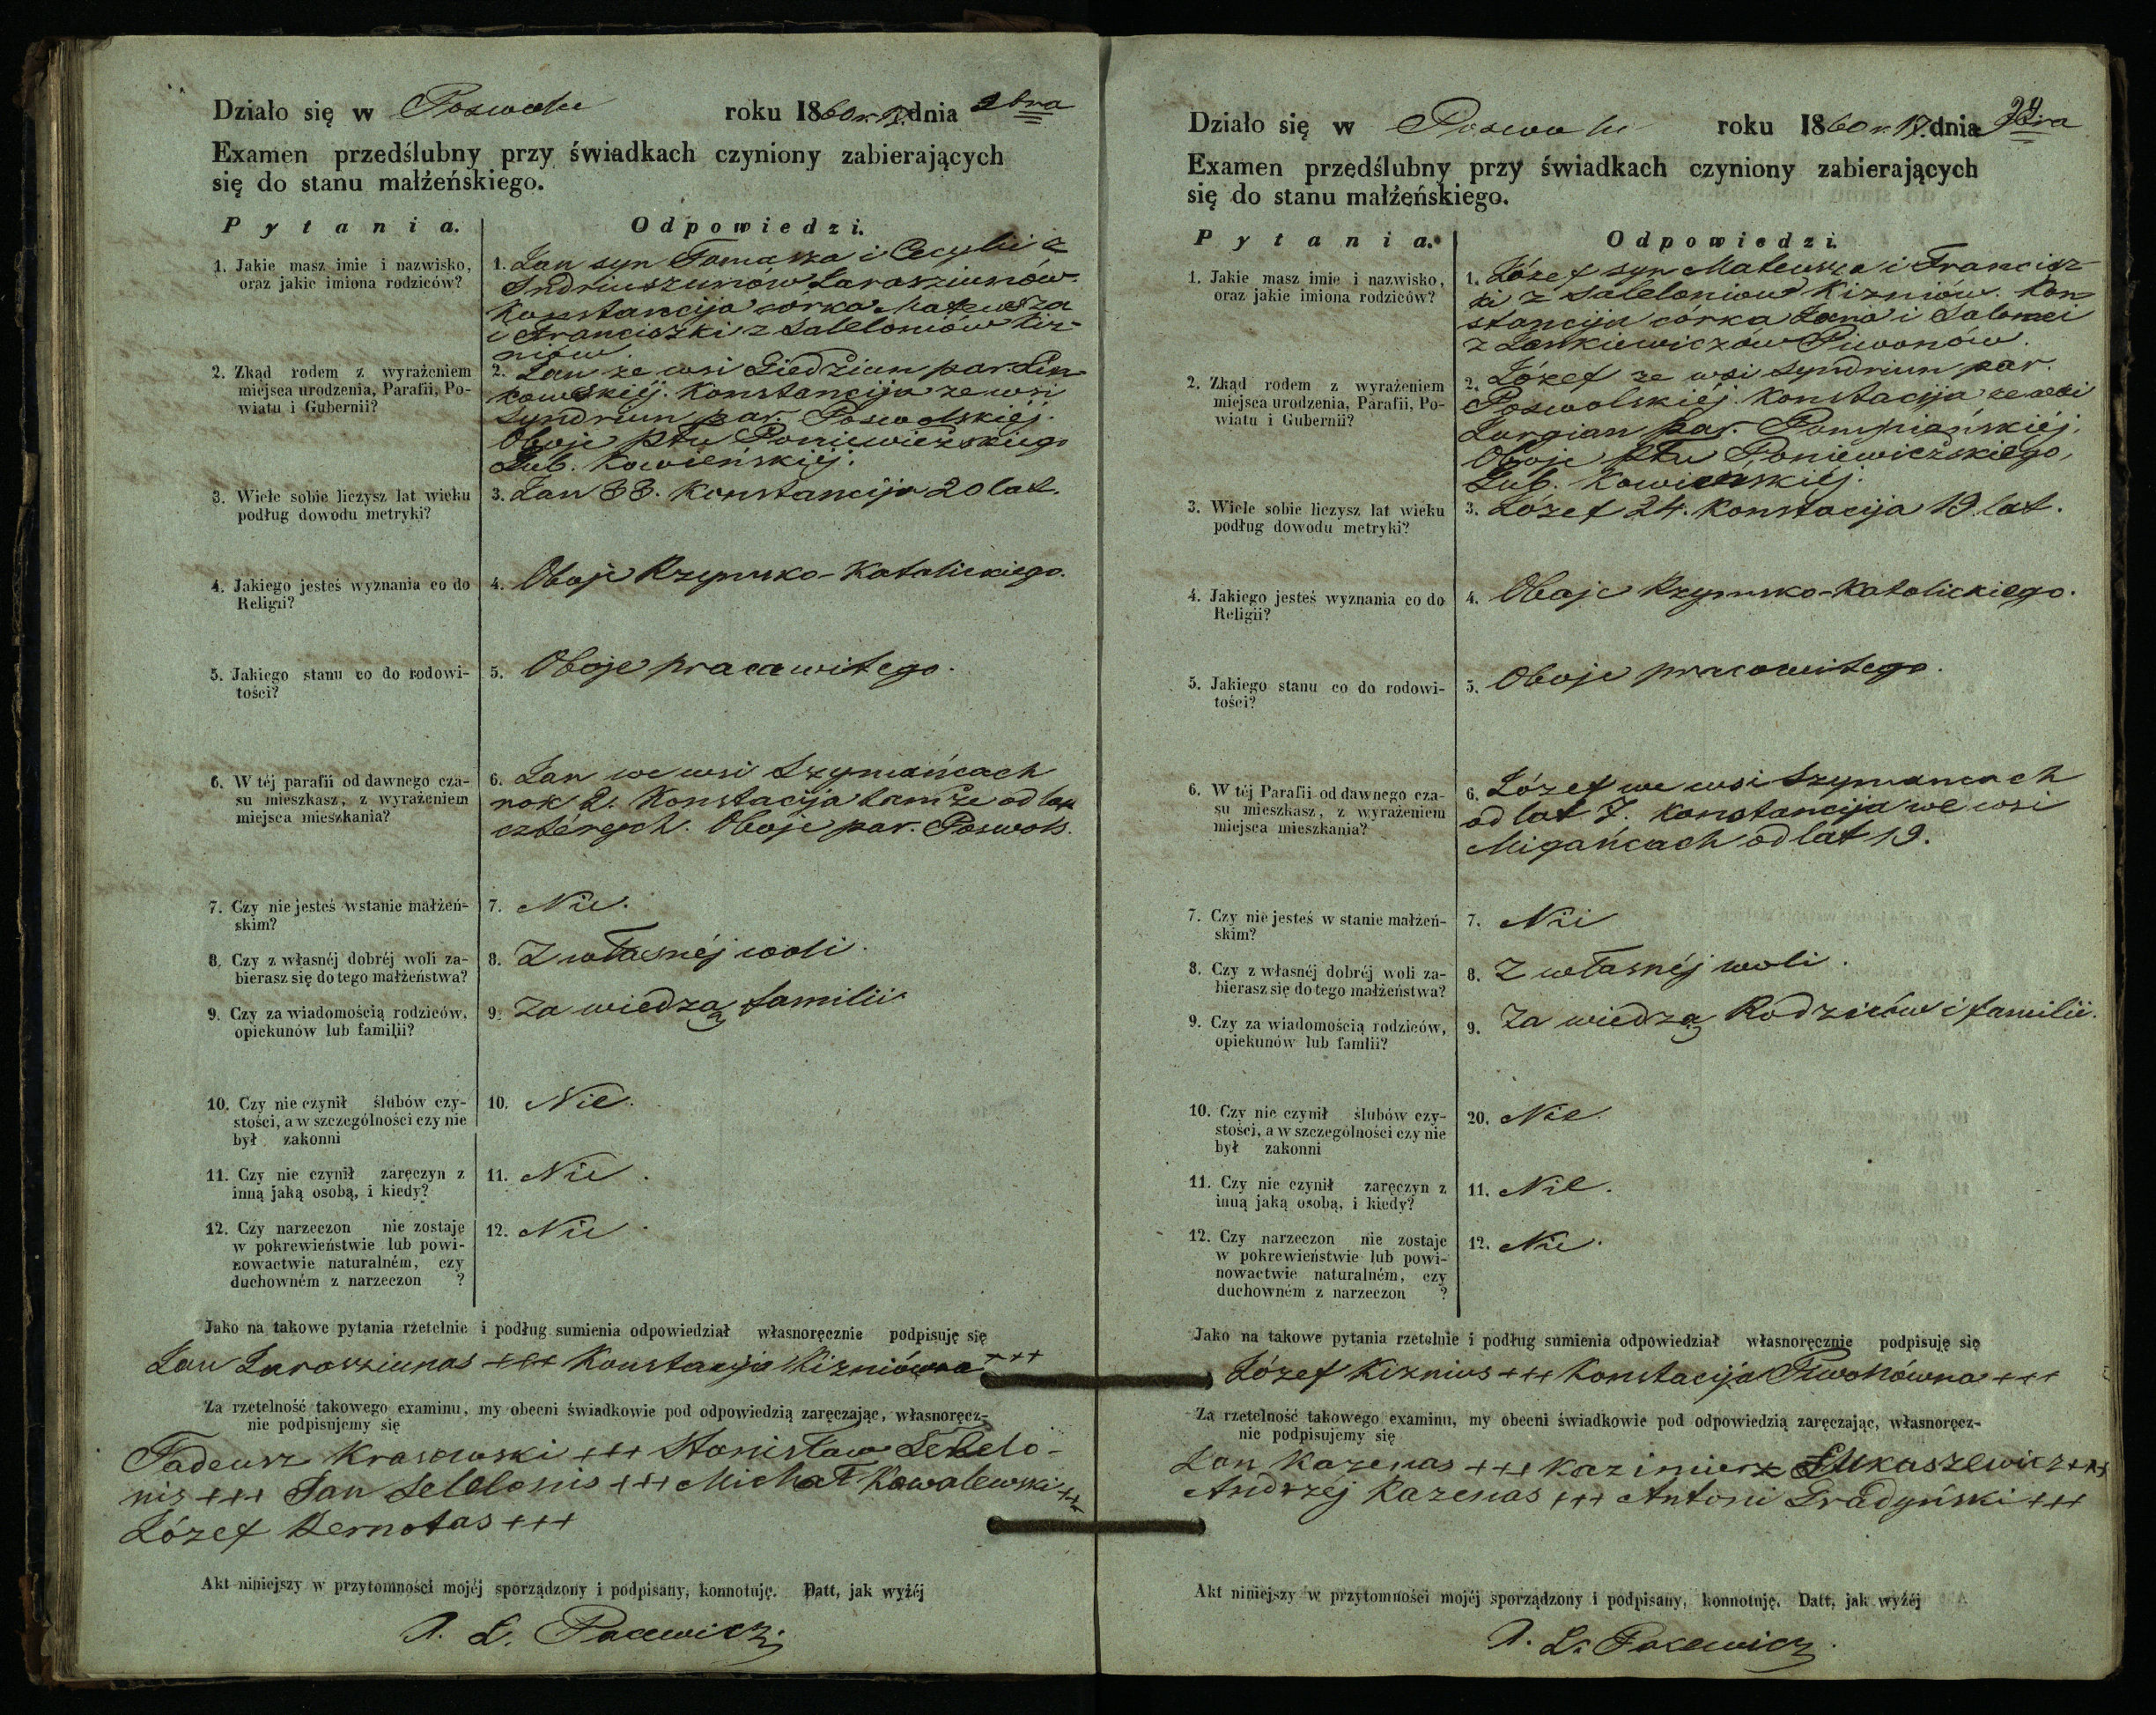 Działo się w Poswolu roku 1860 r. 17. dnia 9bra
Examen przedślubny przy świadkach czyniony zabierających
się do stanu małżeńskiego.
Pytania. Odpowiedzi.
1. Jakie masz imie i nazwisko,
oraz jakie imiona rodziców?
1. Jan syn Tomasza i Cecylii z
Indriuszunów Jarosziunów.
Konstancija córka Mateusza
i Franciszki z Saleloniów Kiz-
niów.
2. Zkąd rodem z wyrażeniem
miejsca urodzenia, Parafii, Po-
wiatu i Gubernii?
2. Jan ze wsi Giedziun par Lin
kowskiéj. Konstancija ze wsi
Syndriun par. Poswolskiéj.
Oboje ptu Poniewieżskiego
Gub. Kowieńskiéj.
3. Wiele sobie liczysz lat wieku
podług dowodu metryki?
3. Jan 33. Konstancija 20 lat.
4. Jakiego jesteś wyznania co do
Religii?
4. Oboje Rzymsko-Katolickiego.
5. Jakiego stanu co do rodowi-
tości?
5. Oboje pracowitego.
6. W téj parafii od dawnego cza-
su mieszkasz, z wyrażeniem
miejsca mieszkania?
6. Jan we wsi Szymańcach
rok 2. Konstacija tamże od lat
czterech. Oboje par. Poswols.
7. Czy nie jesteś wstanie małżeń-
skim?
7. Nie.
8. Czy z własnéj dobréj woli za-
bierasz się do tego małżeństwa?
8. Z własnéj woli.
9. Czy za wiadomością rodziców,
opiekunów lub familii?
9. Za wiedzą familii
10. Czy nie czynił ślubów czy-
stości, a w szczególności czy nie
był zakonni
10. Nie.
11. Czy nie czynił zaręczyn z
inną jaką osobą, i kiedy?
11. Nie.
12. Czy narzeczon nie zostaje
w pokrewieństwie lub powi-
nowactwie naturalném, czy
duchowném z narzeczon ?
12. Nie.
Jako na takowe pytania rzetelnie i podług sumienia odpowiedział własnoręcznie podpisuję się
Jan Jarosziunas +++ Konstacija Kizniówna +++
Za rzetelność takowego examinu, my obecni świadkowie pod odpowiedzią zaręczając, własnoręcz-
nie podpisujemy się
Tadeusz Krasowski +++ Stanisław Lebelo-
nis +++ Jan Lelelonis +++ Michał Kowalewski +++
Józef Bernotas +++
Akt niniejszy w przytomności mojéj sporządzony i podpisany, konnotuję. Datt, jak wyżéj
A. L. Pacewicz.
Działo się w Poswolu roku 1860 r. 17. dnia 9bra
Examen przedślubny przy świadkach czyniony zabierających
się do stanu małżeńskiego.
Pytania. Odpowiedzi.
1. Jakie masz imie i nazwisko,
oraz jakie imiona rodziców?
1. Józef syn Mateusza i Francisz
ki z Saleloniow Kizniów. Kon
stancija córka Jana i Salomei
z Jankiewiczów Piwonów.
2. Zkąd rodem z wyrażeniem
miejsca urodzenia, Parafii, Po-
wiatu i Gubernii?
2. Józef ze wsi Syndriun par.
Poswolskiéj. Konstacija ze wsi
Jurgian par. Pompiańskiéj.
Oboje Ptu Poniewieżskiego,
Gub. Kowieńskiéj.
3. Wiele sobie liczysz lat wieku
podług dowodu metryki?
3. Józef 24. Konstacija 19 lat.
4. Jakiego jesteś wyznania co do
Religii?
4. Oboje Rzymsko-Katolickiego.
5. Jakiego stanu co do rodowi-
tości?
5. Oboje pracowitego.
6. W téj Parafii od dawnego cza-
su mieszkasz, z wyrażeniem
miejsca mieszkania?
6. Józef we wsi Szymancach
od lat 7. Konstancija we wsi
Migańcach od lat 19.
7. Czy nie jesteś w stanie małżeń-
skim?
7. Nie
8. Czy z własnéj dobréj woli za-
bierasz się do tego małżeństwa?
8. Z własnéj woli.
9. Czy za wiadomością rodziców,
opiekunów lub famlii?
9. Za wiedzą Rodziców i familii.
10. Czy nie czynił ślubów czy-
stości, a w szczególności czy nie
był zakonni
20. Nie.
11. Czy nie czynił zaręczyn z
inną jaką osobą, i kiedy?
11. Nie.
12. Czy narzeczon nie zostaje
w pokrewieństwie lub powi-
nowactwie naturalném, czy
duchowném z narzeczon ?
12. Nie.
Jako na takowe pytania rzetelnie i podług sumienia odpowiedział własnoręcznie podpisuję się
Józef Kiznius +++ Konstacija Piwonówna +++
Za rzetelność takowego examinu, my obecni świadkowie pod odpowiedzią zaręczając, własnoręcz-
nie podpisujemy się
Jan Kazenas +++ Kazimierz Łukaszewicz +++
Andrzéj Kazenas +++ Antoni Gradyński +++
Akt niniejszy w przytomności mojéj sporządzony i podpisany, konnotuję. Datt, jak wyżéj
A. L. Pacewicz.